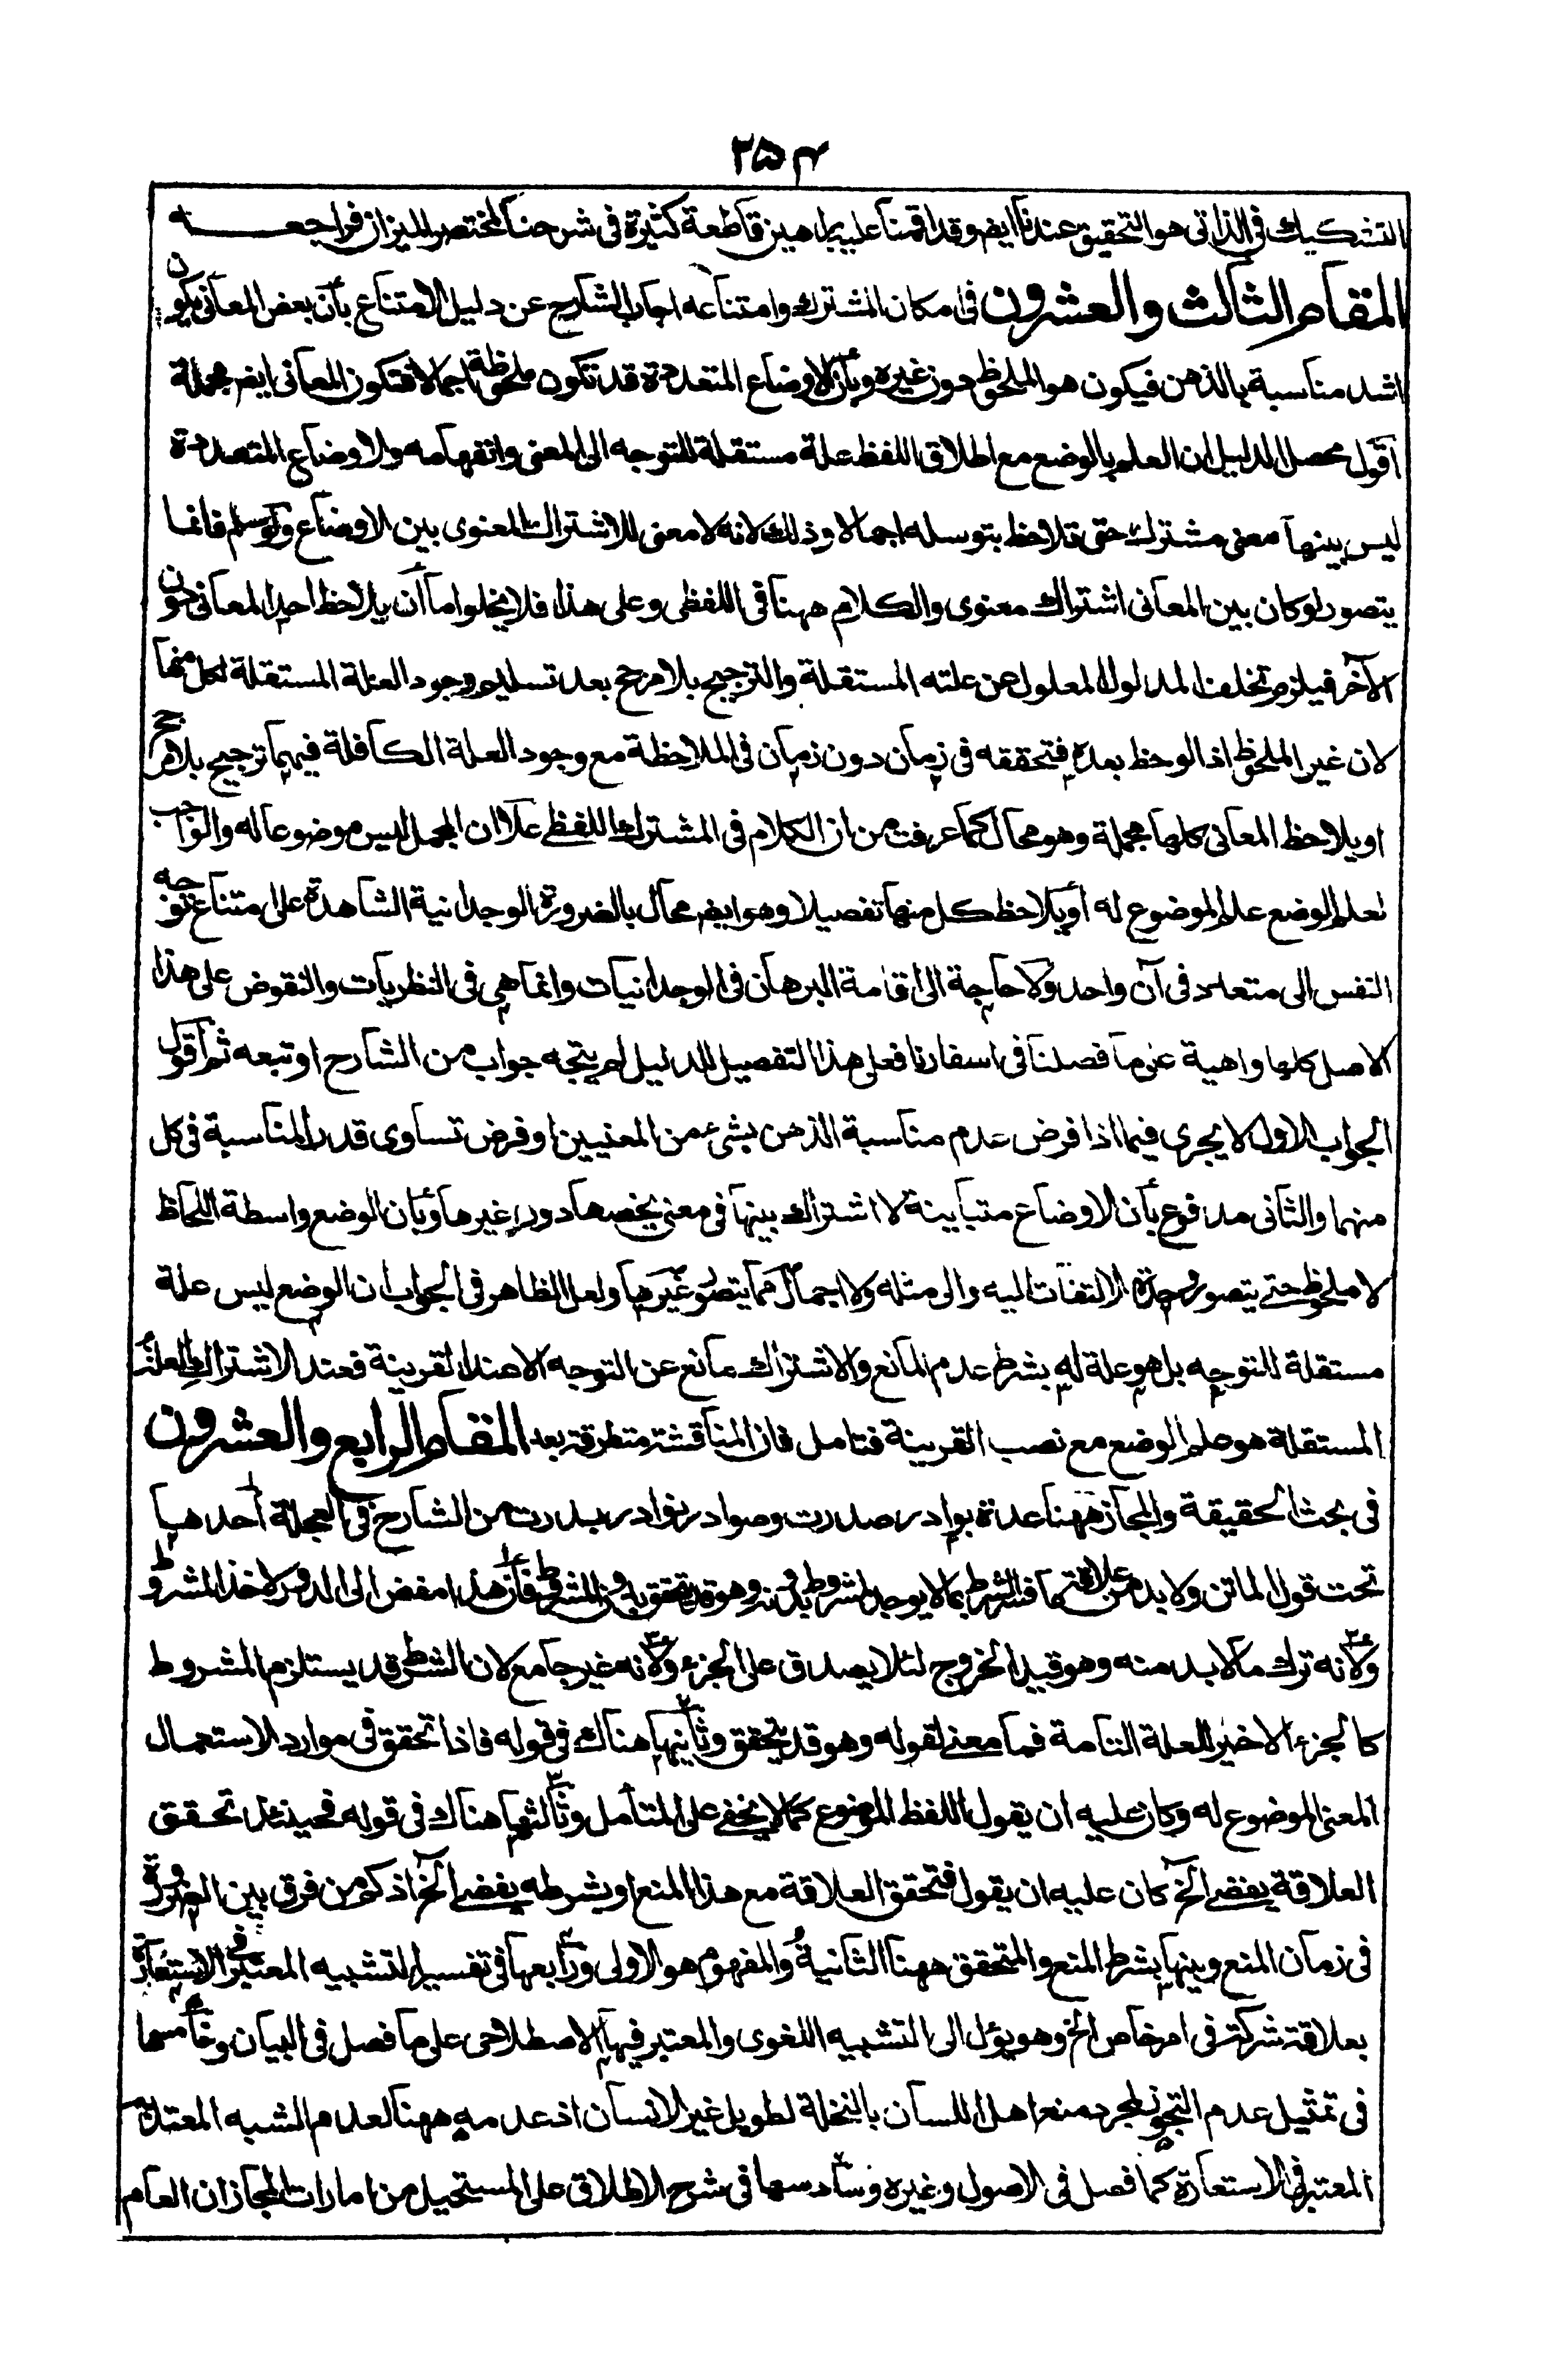 ۲۵۴
التشكيك فی الذاتی هو التحقیق عندنا ایضم وقد اقمنا علیه براهین قاطعة كثیرة فی شرحنا المختصر للمیزان فراجعه
المقام الثالث والعشرون فی امكان المشترك وامتناعه اجاب الشارح عن دلیل الامتناع بأن بعض المعانی یكون
اشد مناسبة بالذهن فیكون هو الملحوظ دون غیره وبأن الاوضاع المتعددة قد تكون ملحوظة اجمالا فتكون المعانی ایضم مجملة
اقول محصل الدلیل ان العلم بالوضع مع اطلاق اللفظ علة مستقلة للتوجه الی المعنی وانفهامه والاوضاع المتعددة
لیس بینها معنی مشترك حتی تلاحظ بتوسله اجمالا وذلك لانه لا معنی للاشتراك المعنوی بین الاوضاع ولو سلم فانما
یتصور لو كان بین المعانی اشتراك معنوی والكلام ههنا فی اللفظی وعلی هذا فلا یخلوا ما أن یلاحظ احد المعانی دون
الآخر فیلزم تخلف المدلول المعلول عن علته المستقلة والترجیح بلا مرجح بعد تسلیم وجود العلة المستقلة لكل منها
لان غیر الملحوظ اذا لوحظ بعده فتحققه فی زمان دون زمان فی الملاحظة مع وجود العلة الكافلة فیهما ترجیح بلا مرجح
او یلاحظ المعانی كلها مجملة وهو محال كما عرفت من ان الكلام فی المشترك اللفظے علا ان المجمل لیس موضوعا له والواجب
لعلم الوضع علم الموضوع له أو یلاحظ كل منها تفصیلا وهو ایضم محال بالضرورة الوجدانیة الشاهدة علی امتناع توجه
النفس الی متعدد فی آن واحد ولا حاجة الی اقامة البرهان فی الوجدانیات وانما هی فی النظریات والنقوض علی هذا
الاصل كلها واهیة علی ما فصلنا فی اسفارنا فعلی هذا التفصیل للدلیل لم یتجه جواب من الشارح او تبعه ثم اقول
الجواب الاول لا یجری فیما اذا فرض عدم مناسبة الذهن بشیء من المعنیین او فرض تساوی قدر المناسبة فی كل
منهما والثانی مدفوع بأن الاوضاع متباینة لا اشتراك بینها فی معنی یخصها دون غیرها وبان الوضع واسطة اللحاظ
لا ملحوظ حتے یتصور وحدة الالتفات الیه والی مثله ولا اجمال مما یتصور غیرها ولعل الظاهر فی الجواب ان الوضع لیس علة
مستقلة للتوجه بل هو علة له بشرط عدم المانع والاشتراك مانع عن التوجه الا عند القرینة فعند الاشتراك العلة
المستقلة هو علم الوضع مع نصب القرینة فتامل فان المناقشة متطرقة بعد المقام الرابع والعشرون
فی بحث الحقیقة والمجاز ههنا عدة بوادر صدرت وصوادر نوادر بدرت من الشارح فی العجلة أحدها
تحت قول الماتن ولا بد من علاقة فسر الشرط بما لا یوجد المشروط بدونه وهو قد یتحقق بدون المشروط فأن هذا مفض الی الدور لاخذ المشروط
ولانه ترك ما لا بد منه وهو قید الخروج لئلا یصدق علی الجزء ولانه غیر جامع لان الشرط قد یستلزم المشروط
كالجزء الاخیر للعلة التامة فما معنے لقوله وهو قد یتحقق وثانیها هناك فی قوله فاذا تحقق فی موارد الاستعمال
المعنی الموضوع له وكان علیه ان یقول اللفظ الموضوع كما لا یخفے علی المتأمل وثالثها هناك فی قوله فحینئذ تحقق
العلاقة یفضے الخ كان علیه ان یقول فتحقق العلاقة مع هذا المنع او بشرطه یفضے الخ اذ كم من فرق بین الضرورة
فی زمان المنع وبینها بشرط المنع والمتحقق ههنا الثانیة والمفهوم هو الاولی ورابعها فی تفسیر التشبیه المعتبر فی الاستعارة
بعلاقة شركة فی امر خاص الخ وهو یؤل الی التشبیه اللغوی والمعتبر فیها الاصطلاحی علی ما فصل فی البیان وخامسها
فی تمثیل عدم التجوز لمجرد منع اهل اللسان بالنخلة لطویل غیر الانسان اذ عدمه ههنا لعدم الشبه المعتد به
المعتبر فی الاستعارة كما فصل فی الاصول وغیره وسادسها فی شرح الاطلاق علی المستحیل من امارات المجاز ان العام